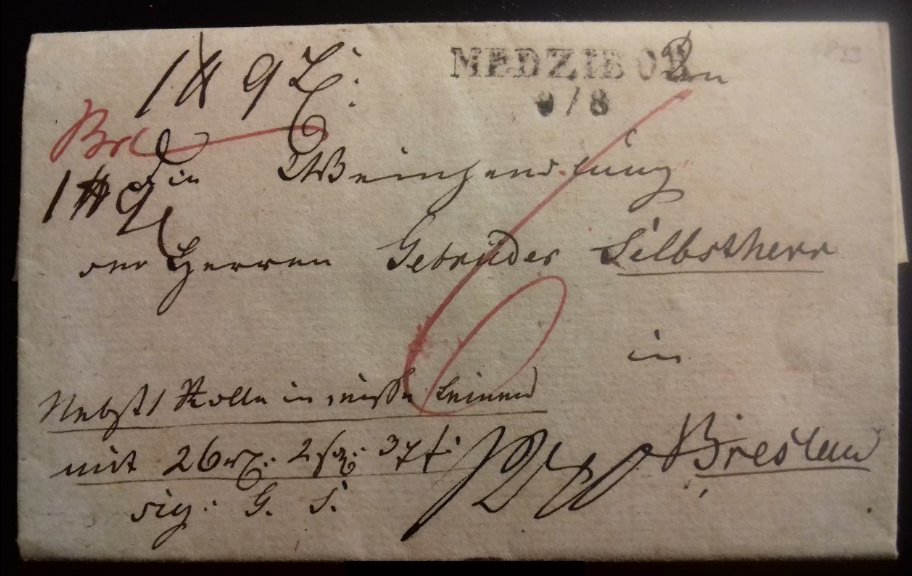 MEDZIBOR
9/8
1 ℔ 9
Brl
1 ℔ 9
die Weinhandlung
der Herren Gebrüder Selbstherr
6
in
Breslau
Nebst 1 Rolle in Leinen
mit 26 2 sg: 3 pf:
sig: G. S.